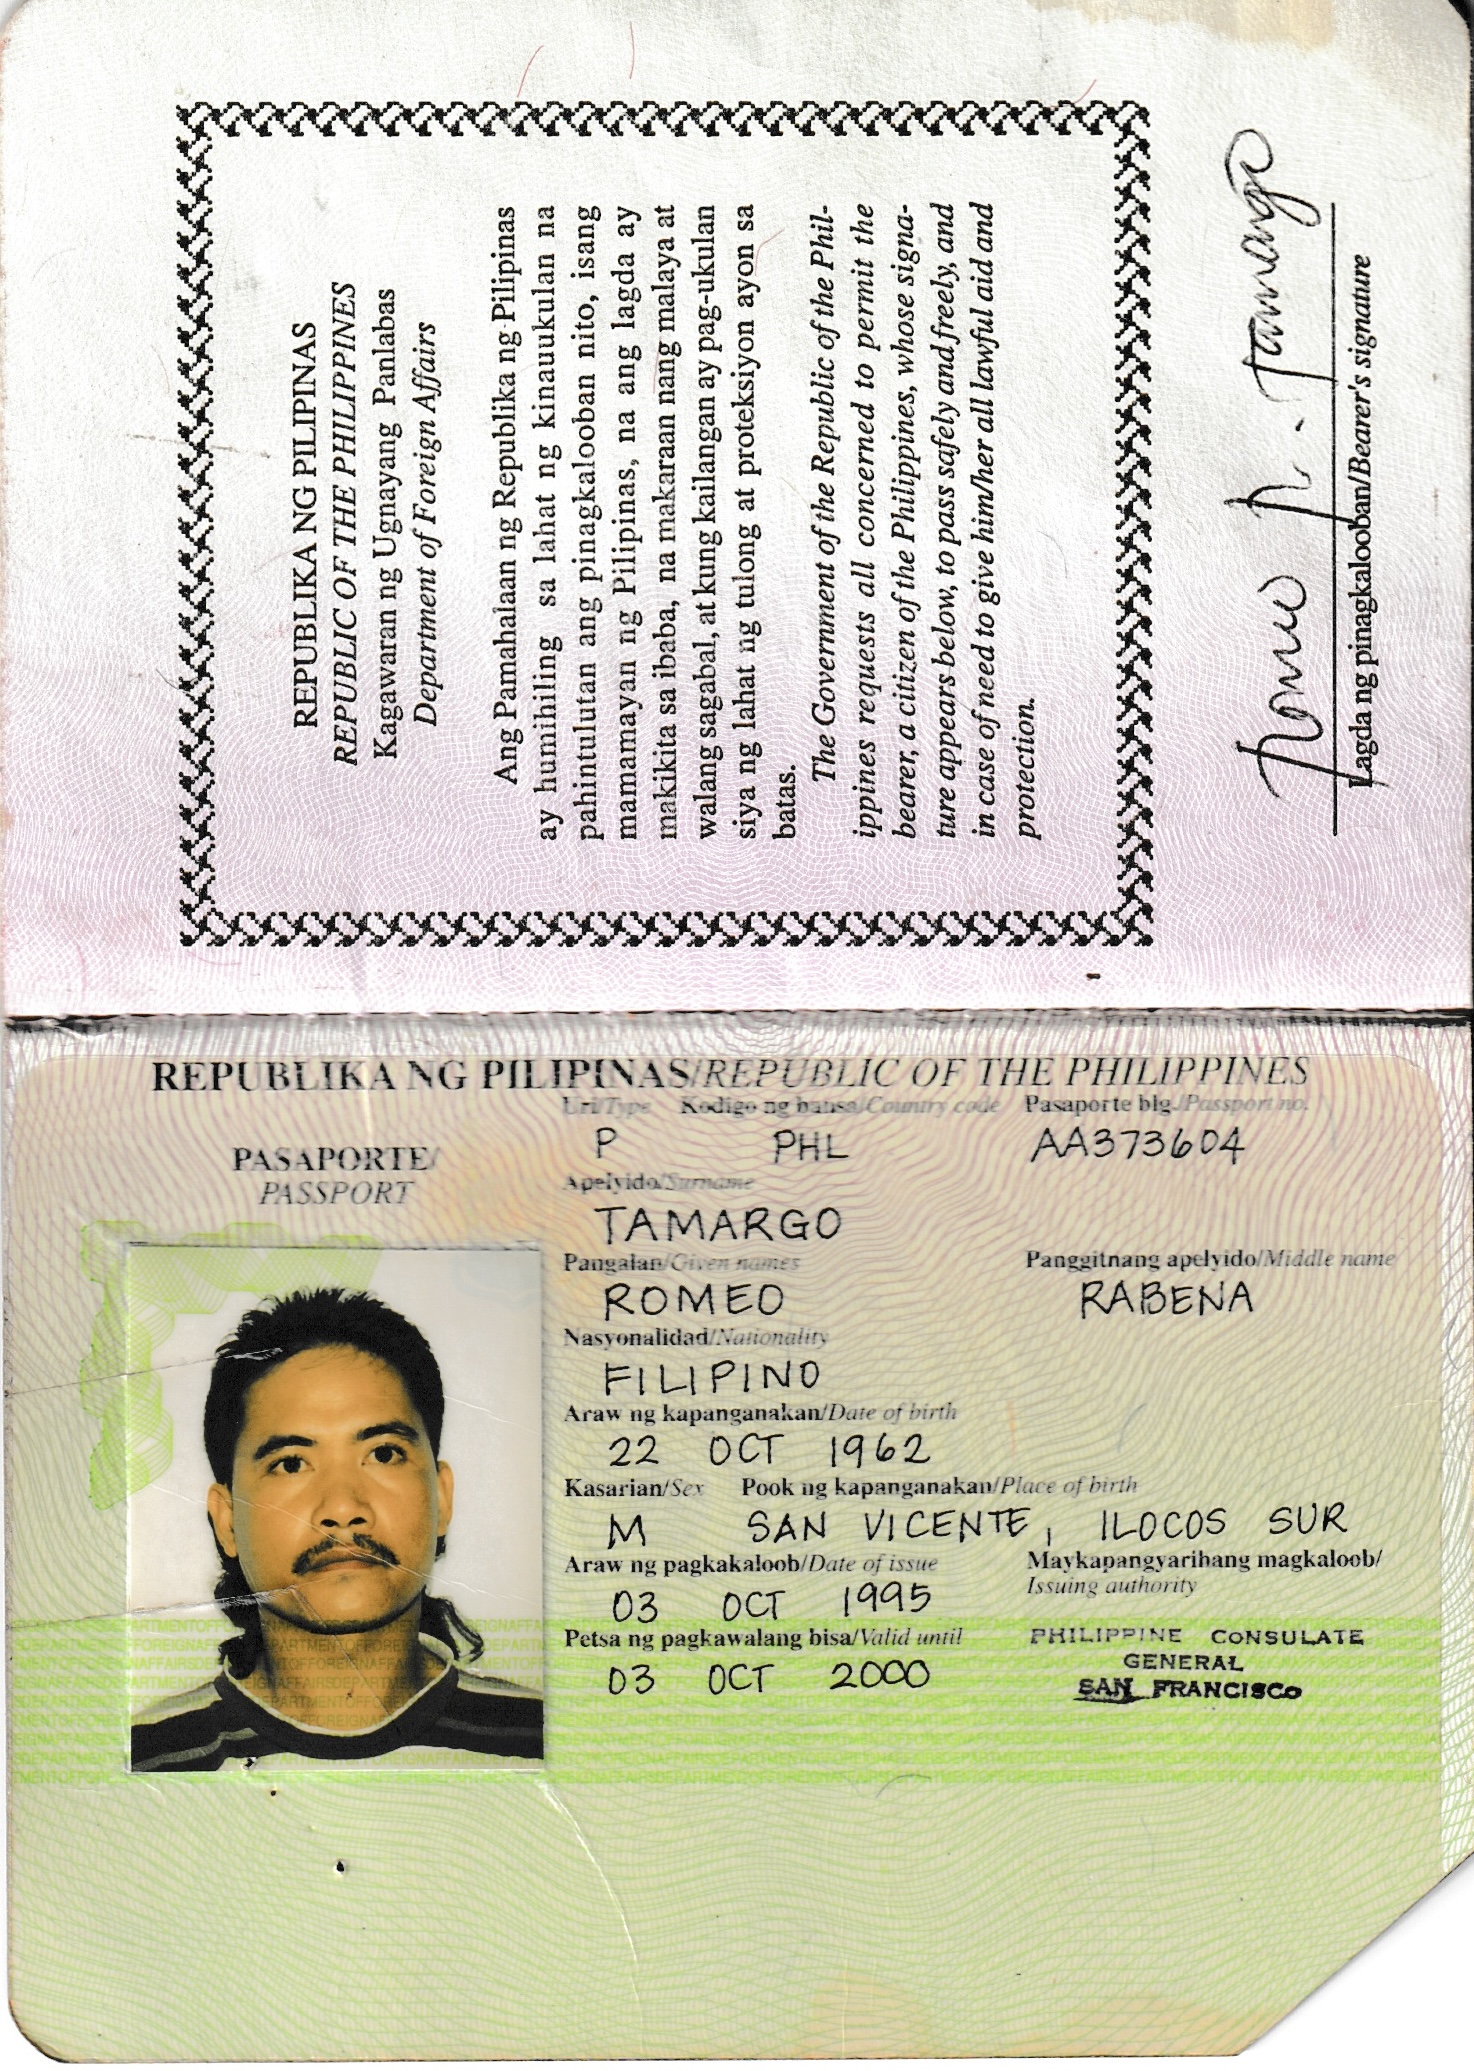 REPUBLIKA NG PILIPINAS
REPUBLIC OF THE PHILIPPINES
Kagawaran ng Ugnayang Panlabas
Department of Foreign Affairs
Ang Pamahalaan ng Republika ng Pilipinas
ay humihiling sa lahat ng kinauukulan na
pahintulutan ang pinagkalooban nito, isang
mamamayan ng Pilipinas, na ang lagda ay
makikita sa ibaba, na makaraan nang malaya at
walang sagabal, at kung kailangan ay pag-ukulan
siya ng lahat ng tulong at proteksiyon ayon sa
batas.
The Government of the Republic of the Phil-
ippines requests all concerned to permit the
bearer, a citizen of the Philippines, whose signa-
ture appears below, to pass safely and freely, and
in case of need to give him/her all lawful aid and
protection.
Romeo R. Tamargo
Lagda ng pinagkalooban/Bearer's signature
REPUBLIKA NG PILIPINAS/REPUBLIC OF THE PHILIPPINES
PASAPORTE/
PASSPORT
Uri/Type Kodigo ng bansa/Country code Pasaporte blg./Passport no.
P PHL AA373604
Apelyido/Surname
TAMARGO
Pangalan/Given names Panggitnang apelyido/Middle name
ROMEO RABENA
Nasyonalidad/Nationality
FILIPINO
Araw ng kapanganakan/Date of birth
22 OCT 1962
Kasarian/Sex Pook ng kapanganakan/Place of birth
M SAN VICENTE, ILOCOS SUR
Araw ng pagkakaloob/Date of issue Maykapangyarihang magkaloob/
Issuing authority
03 OCT 1995
Petsa ng pagkawalang bisa/Valid until
03 OCT 2000
PHILIPPINE CONSULATE
GENERAL
SAN FRANCISCO